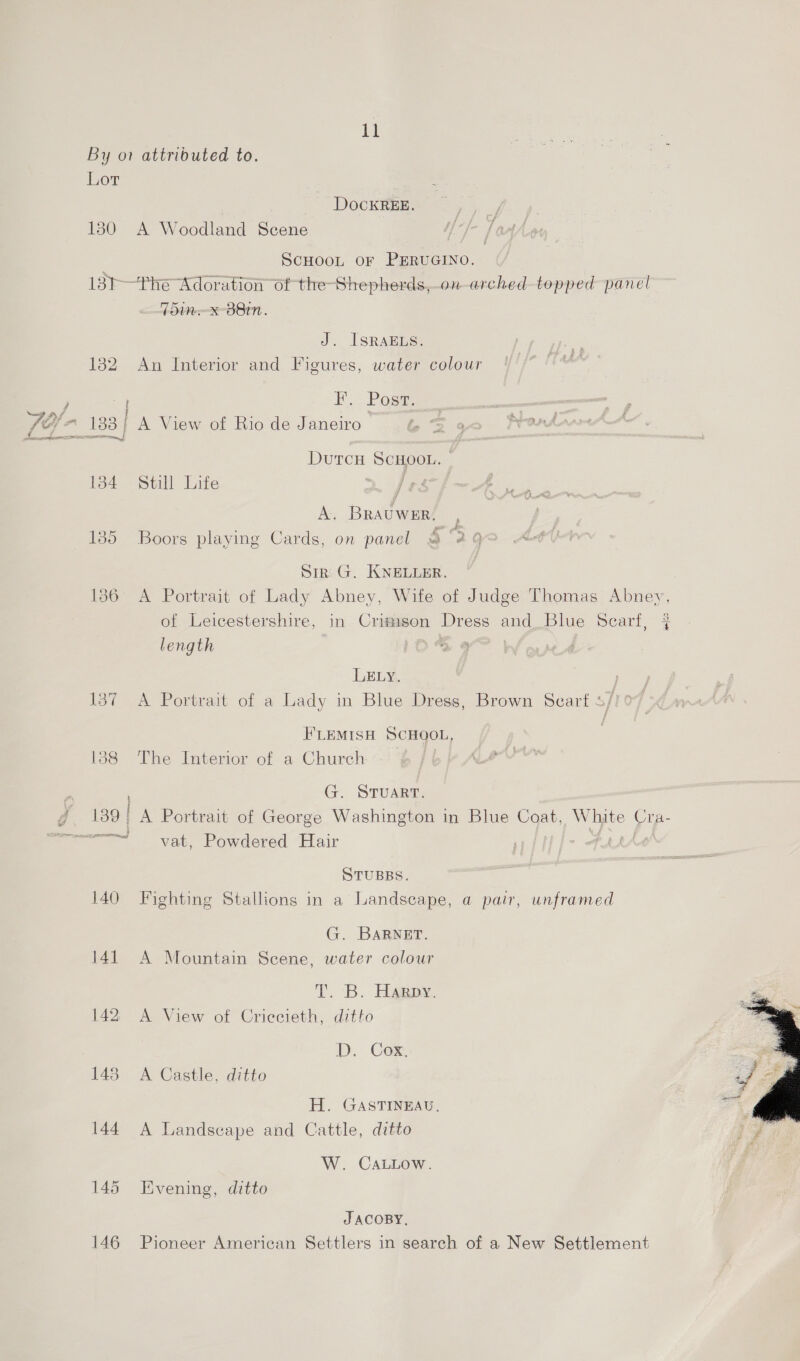 11
By or attributed to.
Lot
DOCKREE.
130 A Woodland Scene
SCHOOL OF PERUGINO.
131 The Adoration of the Shepherds, on arched topped panel
75in. x 38in.
J. ISRAELS.
132 An Interior and Figures, water colour
F. POST.
133 A View of Rio de Janeiro
DUTCH SCHOOL.
134 Still Life
A. BRAUWER.
135 Boors playing Cards, on panel
SIR G. KNELLER.
136 A Portrait of Lady Abney, Wife of Judge Thomas Abney,
of Leicestershire, in Crimson Dress and Blue Scarf, ¾
length
LELY.
137 A Portrait of a Lady in Blue Dress, Brown Scarf
FLEMISH SCHOOL,
138 The Interior of a Church
G. STUART.
139 A Portrait of George Washington in Blue Coat, White Cra-
vat, Powdered Hair
STUBBS.
140 Fighting Stallions in a Landscape, a pair, unframed
G. BARNET.
141 A Mountain Scene, water colour
T. B. HARDY.
142 A View of Criccieth, ditto
D. COX.
143 A Castle, ditto
H. GASTINEAU.
144 A Landscape and Cattle, ditto
W. CALLOW.
145 Evening, ditto
JACOBY.
146 Pioneer American Settlers in search of a New Settlement